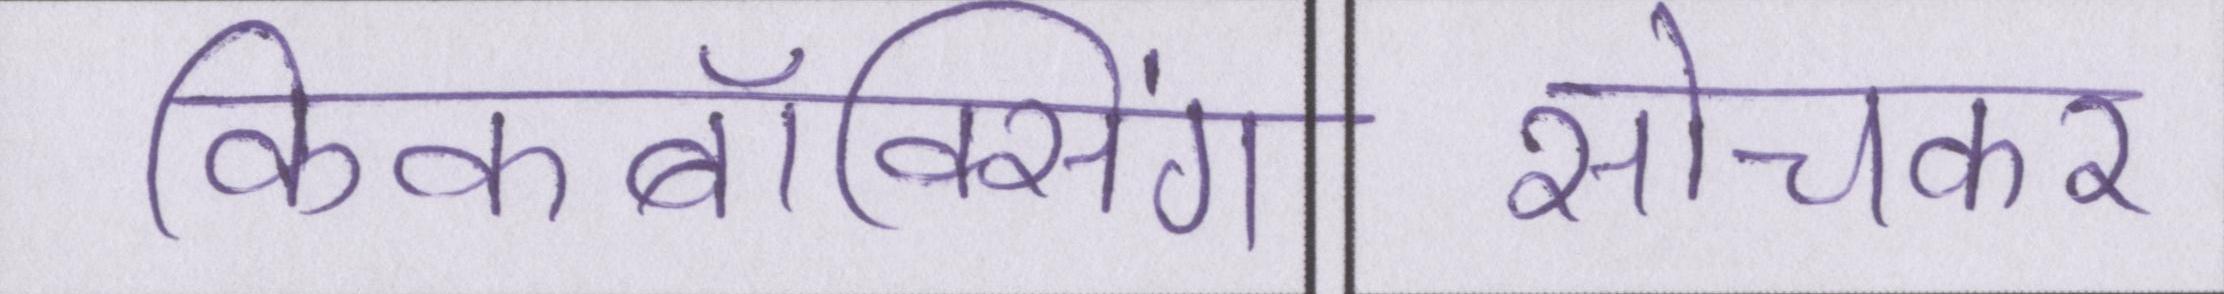 किकबॉक्सिंग सोचकर